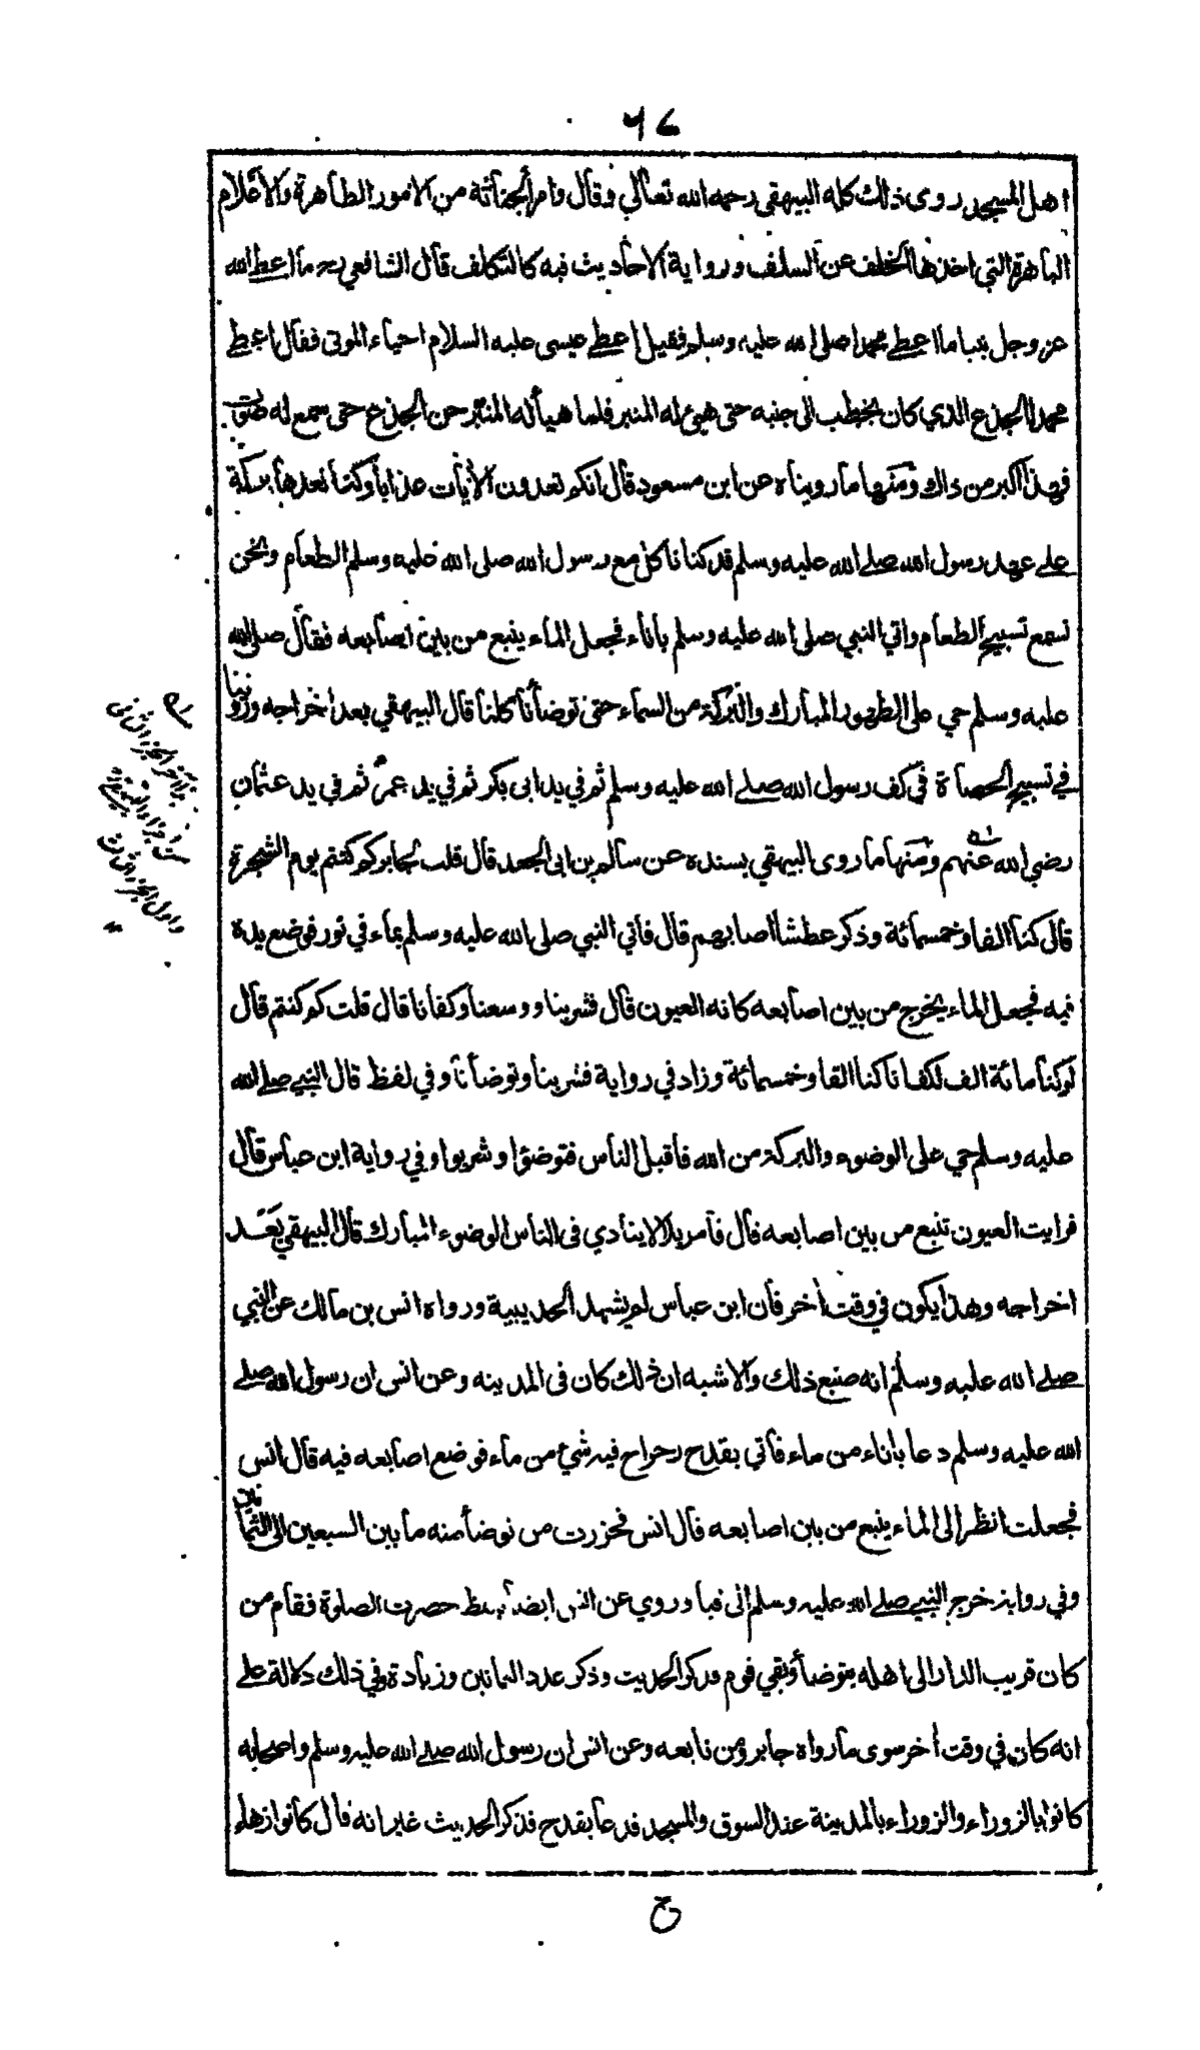 ٦٧
اهل المسجد روى ذلك كله البيهقي رحمه الله تعالى وقال وامر الجنانة من الامور الظاهرة والاعلام
الباهرة التي اخذها الخلف عن السلف ورواية الاحاديث فيه كالتكلف قال الشافعي رح ما اعطى الله
عز وجل نبيا ما اعطى محمدا صلى الله عليه وسلم فقيل اعطى عيسى عليه السلام احياء الموتى فقال اعطى
محمدا الجذع الذي كان يخطب الى جنبه حتى هيئ له المنبر فلما هيأ له المنبر حن الجذع حتى سمع له صوت
فهذا اكبر من ذاك ومنها ما رويناه عن ابن مسعود قال انكم تعدون الأيات عذابا وكنا نعدها بركة
على عهد رسول الله صلى الله عليه وسلم قد كنا نأكل مع رسول الله صلى الله عليه وسلم الطعام ونحن
نسمع تسبيح الطعام واتي النبي صلى الله عليه وسلم باناء فجعل الماء ينبع من بين اصابعه فقال صلى الله
عليه وسلم حي على الطهور المبارك والبركة من السماء حتى توضأنا كلنا قال البيهقي بعد اخراجه وروينا
في تسبيح الحصاة في كف رسول الله صلى الله عليه وسلم ثم في يد ابى بكر ثم في يد عمر ثم في يد عثمان
رضي الله عنهم ومنها ما روى البيهقي بسنده عن سالم بن ابى الجعد قال قلت لجابر كم كنتم يوم الشجرة
قال كنا الفا وخمسمائة وذكر عطشا اصابهم قال فاتي النبي صلى الله عليه وسلم بماء في تور فوضع يده
فيه فجعل الماء يخرج من بين اصابعه كانه العيون قال فشربنا ووسعنا وكفانا قال قلت كم كنتم قال
لو كنا مائة الف لكفانا كنا الفا وخمسمائة وزاد في رواية فشربنا وتوضأنا وفي لفظ قال النبي صلى الله
عليه وسلم حي على الوضوء والبركة من الله فأقبل الناس فتوضؤا وشربوا وفي رواية ابن عباس قال
فرايت العيون تنبع من بين اصابعه قال فأمر بلالا ينادي في الناس الوضوء المبارك قال البيهقي بعد
اخراجه وهذا يكون في وقت أخر فأن ابن عباس لم يشهد الحديبية ورواه انس بن مالك عن النبي
صلى الله عليه وسلم انه صنع ذلك والاشبه ان ذلك كان في المدينه وعن انس ان رسول الله صلى
الله عليه وسلم دعا بأناء من ماء فأتي بقدح رحراح فيه شيء من ماء فوضع اصابعه فيه قال انس
فجعلت انظر الى الماء ينبع من بين اصابعه قال انس فحزرت من توضأ منه ما بين السبعين الى الثمانين
وفي رواية خرج النبي صلى الله عليه وسلم الى قبا وروي عن انس ايضا حضرت الصلوة فقام من
كان قريب الدار الى اهله يتوضأ وبقي قوم فذكر الحديث وذكر عدد الثمانين وزيادة وفي ذلك دلالة على
انه كان في وقت أخر سوى ما رواه جابر ومن تابعه وعن انس ان رسول الله صلى الله عليه وسلم واصحابه
كانوا بالزوراء والزوراء بالمدينة عند السوق والمسجد فدعا بقدح فذكر الحديث غير انه قال كانوا زهاء
ح